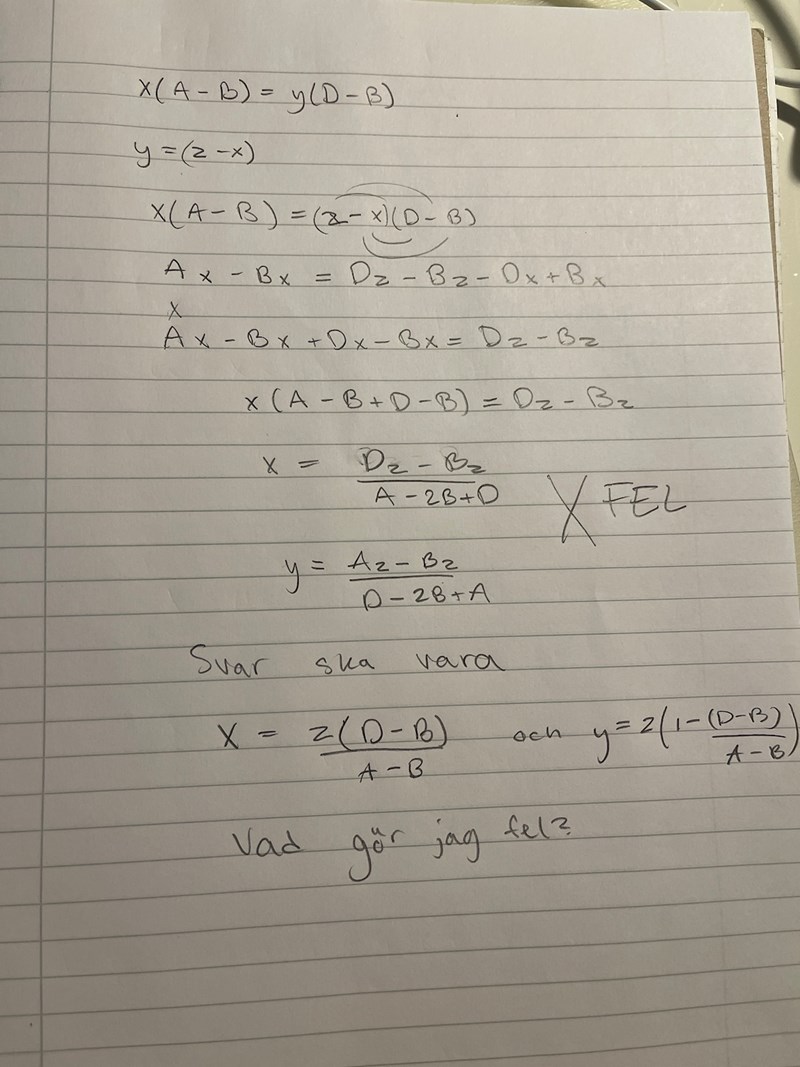 x(A-B) = y(D-B)
y = (z-x)
x(A-B) = (z-x)(D-B)
Ax - Bx = Dz - Bz - Dx + Bx
x
Ax - Bx + Dx - Bx = Dz - Bz
x(A-B+D-B) = Dz - Bz
x = Dz - Bz / A - 2B + D X FEL
y = Az - Bz / D - 2B + A
Svar ska vara
X = z(D-B) / A-B och y = z(1 - (D-B) / A-B)
Vad gör jag fel?